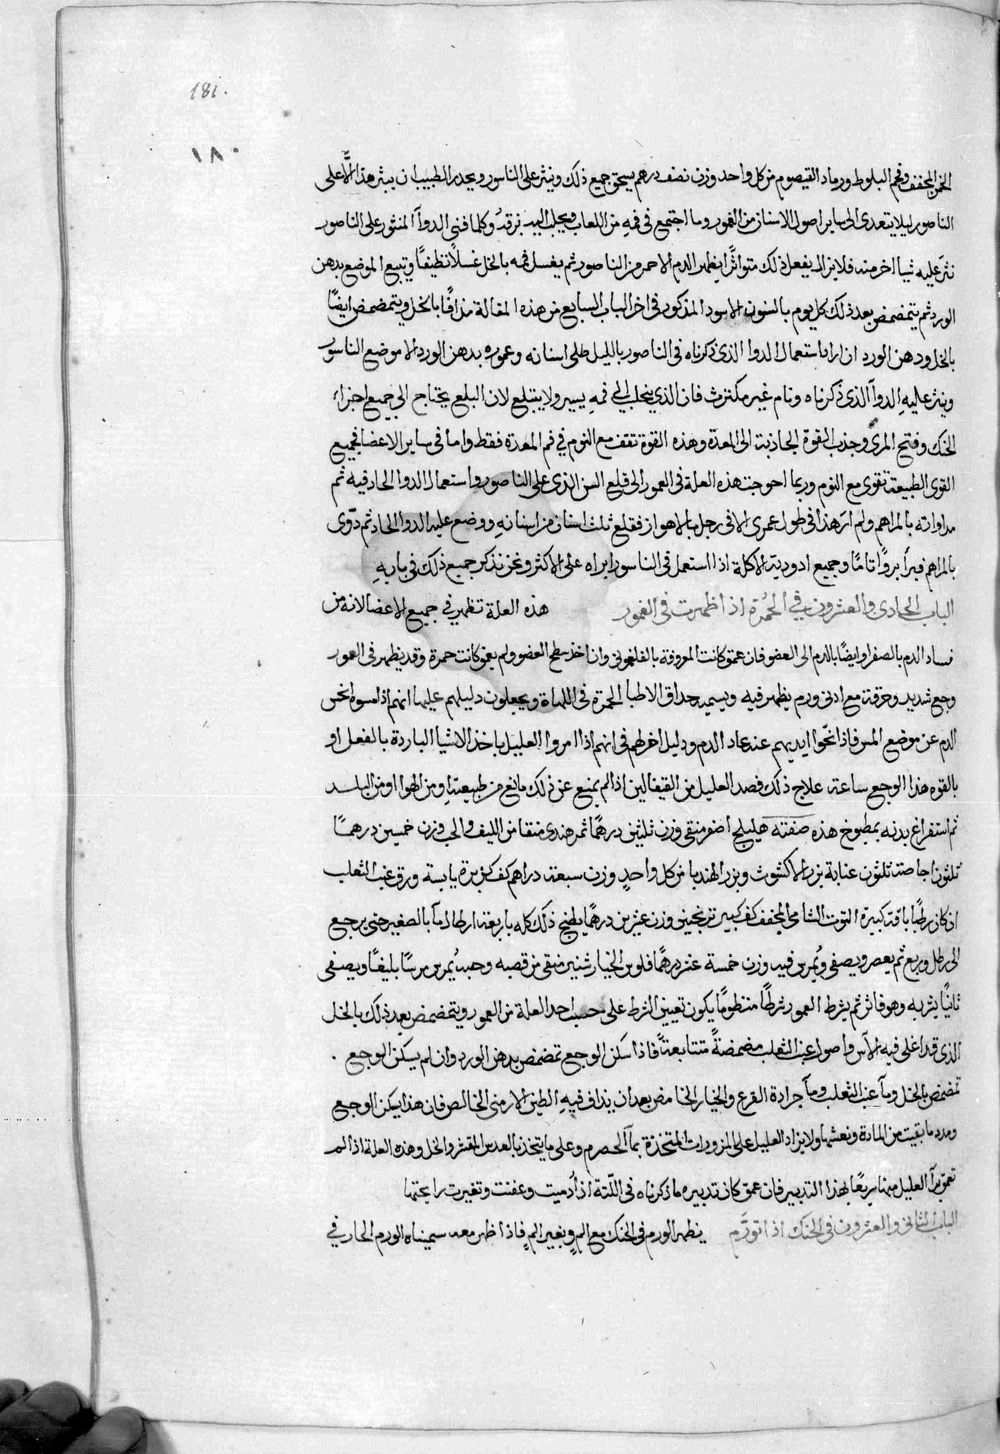 181.
١٨٠
الخمر المجفف وفحم البلوط ورماد القيصوم من كل واحد وزن نصف درهم يسحق جميع ذلك وينثر على الناسور ويحذر الطبيب ان ينثر هذا الا على
الناصور ليلا يتعدى الى ساير اصول الاسنان من العمور وما اجتمع في فمه من اللعاب ويجلب اليد بزقه وكلما فني الدوآ المنثور على الناصور
نثر عليه شيا اخر منه فلا يزال يفعل ذلك متواترًا ليظهر الدم الاحمر من الناصور ثم يغسل فمه بالخل غسلًا نظيفًا ويتبع الموضع بدهن
الورد ثم يتمضمض بعد ذلك كل يوم بالسنون الاسود المذكور في اخر الباب السابع من هذه المقالة مدافًا بالخل ويتمضمض ايضًا
بالخل ودهن الورد ان اراد استعمال الدوا الذى ذكرناه في الناصور بالليل طلى اسنانه وعموره بدهن الورد الا موضع الناسور
ونثر عليه الدوآ الذى ذكرناه ونام غير مكترث فان الذي ينحلب الى فمه يسير ولا يبتلع لان البلع يحتاج الى جميع اجزاء
الحنك وفتح المرئ وجذب القوة الجاذبة الى المعدة وهذه القوة تقف مع النوم في فم المعدة فقط واما في ساير الاعضا فجميع
القوى الطبيعية تقوى مع النوم وربما احوجت هذه العلة في العمور الى قلع السن الذى على الناصور واستعمال الدوا الحار فيه ثم
مداواته بالمراهم ولم ار هذا في طول عمرى الا في رجل بالاهواز فقلع ثلث اسنان من اسنانه ووضع عليه الدوا الحاد ثم دوّى
بالمراهم فبرأ بروًا تامًا وجميع ادوية الاكلة اذا استعمل في الناسور ابراه على الاكثر ونحن نذكر جميع ذلك في بابه
الباب الحادى والعشرون في الحُمرة اذا ظهرت في العمور هذه العلة تظهر في جميع الاعضا لانه من
فساد الدم بالصفرا وايضًا بالدم الى العضو فان عمق كانت المعروفة بالفلغمونى وان اخذ سطح العضو ولم يعمق كانت حمرة وقد يظهر في العمور
وجع شديد وحرقة مع ادنى ورم يظهر فيه ويسميه حذاق الاطبا الحمرة في اللهاة ويجعلون دليلهم عليها انهم اذا لمسوه انخس
الدم عن موضع المس فاذا نحّوا ايديهم عنه عاد الدم ودليل اخر لهم في انهم اذا امروا العليل باخذ الاشيا الباردة بالفعل او
بالقوه هذا الوجع ساعة علاج ذلك فصد العليل من القيفالين اذا لم يمنع عن ذلك مانع من طبيعته ومن الهوا او من البلد
ثم استفراغ بدنه بمطبوخ هذه صفته هليلج اصفر منقى وزن ثلثين درهمًا تمر هندى منقا من الليف والحب وزن خمسين درهمًا
ثلثون اجاصة ثلثون عنابة بزر الاكشوث وبزر الهندبا من كل واحدٍ وزن سبعة دراهم كف كزبرة يابسة ورق عنب الثعلب
اذ كان رطبًا باقة كبيرة التوت الشامى المجفف كف كبير ترنجبين وزن عشرين درهمًا يطبخ ذلك كله باربعة ارطال مآ بالصغير حتى يرجع
الى رطل وربع ثم يعصر ويصفى ويُمرس فيه وزن خمسة عشر درهمًا فلوس الخيار شنبر منقى من قصبه وحبه يُمرس مرسًا بليغًا ويصفى
ثانيًا يشربه وهو فاتر ثم يشرط العمور شرطًا منظومًا يكون تعيين الشرط على حسب احد العلة من العمور ويتمضمض بعد ذلك بالخل
الذى قد اغلى فيه الآس واصول عنب الثعلب مضمضةً متتابعةً فاذا سكن الوجع تمضمض بدهن الورد وان لم يسكن الوجع .
تمضمض بالخل ومآ عنب الثعلب ومآ جرادة القرع والخيار الحامض بعد ان يداف فيه الطين الارمنى الخالص فان هذا يسكن الوجع
ومدد ما بقيت من المادة ونعشها ولا يزاد العليل على المزورات المتخذة بمآ الحصرم وعلى ما يتخذ بالعدس المقشر والخل وهذه العلة اذا لم
تعمق برأ العليل منها سريعًا بهذا التدبير فان عمق كان تدبيره ما ذكرناه في اللثة اذا اُدميت وعفنت وتغيرت رايحتها
الباب الثانى والعشرون في الحنك اذا تورّم يظهر الورم في الحنك مع المٍ وبغير المٍ فاذا ظهر معه سميناه الورم الحار في